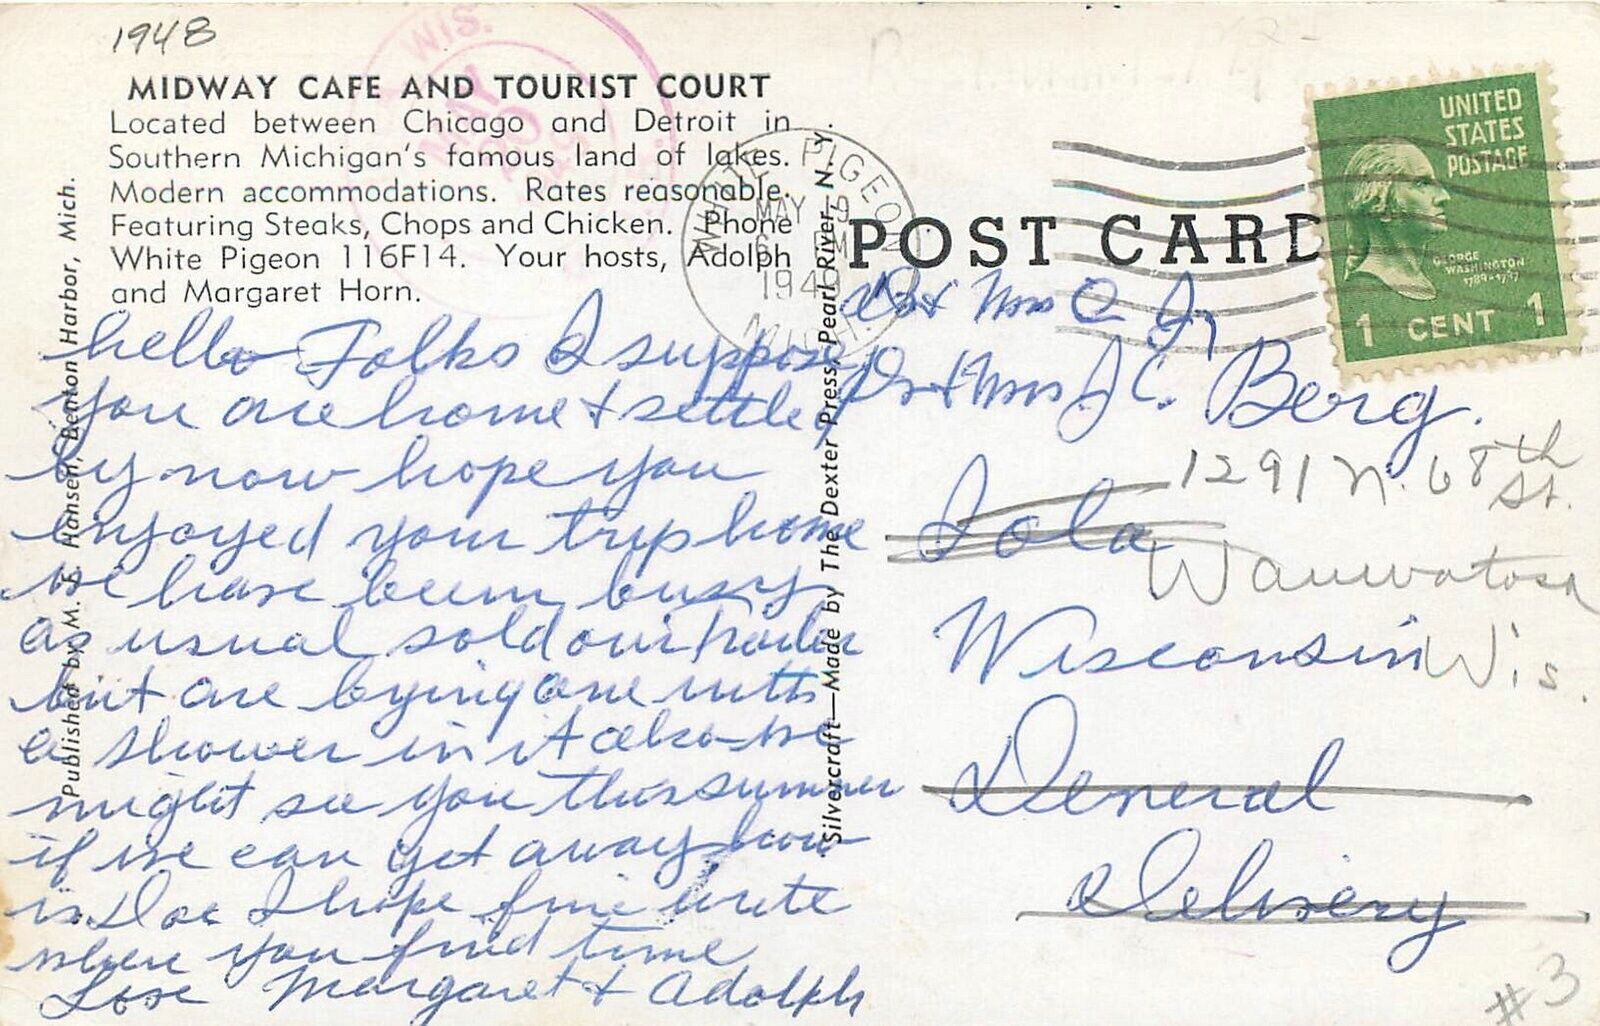 1948
MIDWAY CAFE AND TOURIST COURT
Located between Chicago and Detroit in
Southern Michigan's famous land of lakes.
Modern accommodations. Rates reasonable.
Featuring Steaks, Chops and Chicken. Phone
White Pigeon 116F14. Your hosts, Adolph
and Margaret Horn.
hello Folks I suppose
you are home & settled
by now hope you
enjoyed your trip home
we have been busy
as usual sold our trailer
but are bying one with
a shower in it also we
might see you this summer
if we can get away how
is Doc I hope fine write
when you find time
Love Margaret & Adolph
Published by M. J. Hansen, Benton Harbor, Mich.
Silvercraft—Made by The Dexter Press, Pearl River, N.Y.
WIS.
MAY
20
WHITE PIGEON
MAY 19
6 PM
194
MICH.
POST CARD
UNITED
STATES
POSTAGE
GEORGE
WASHINGTON
1789-1797
1 CENT 1
Dr & Mrs
Dr & Mrs J C. Berg.
1291 N. 68th
St.
Iola
Wauwatosa
Wisconsin Wis.
General
Delivery
#3